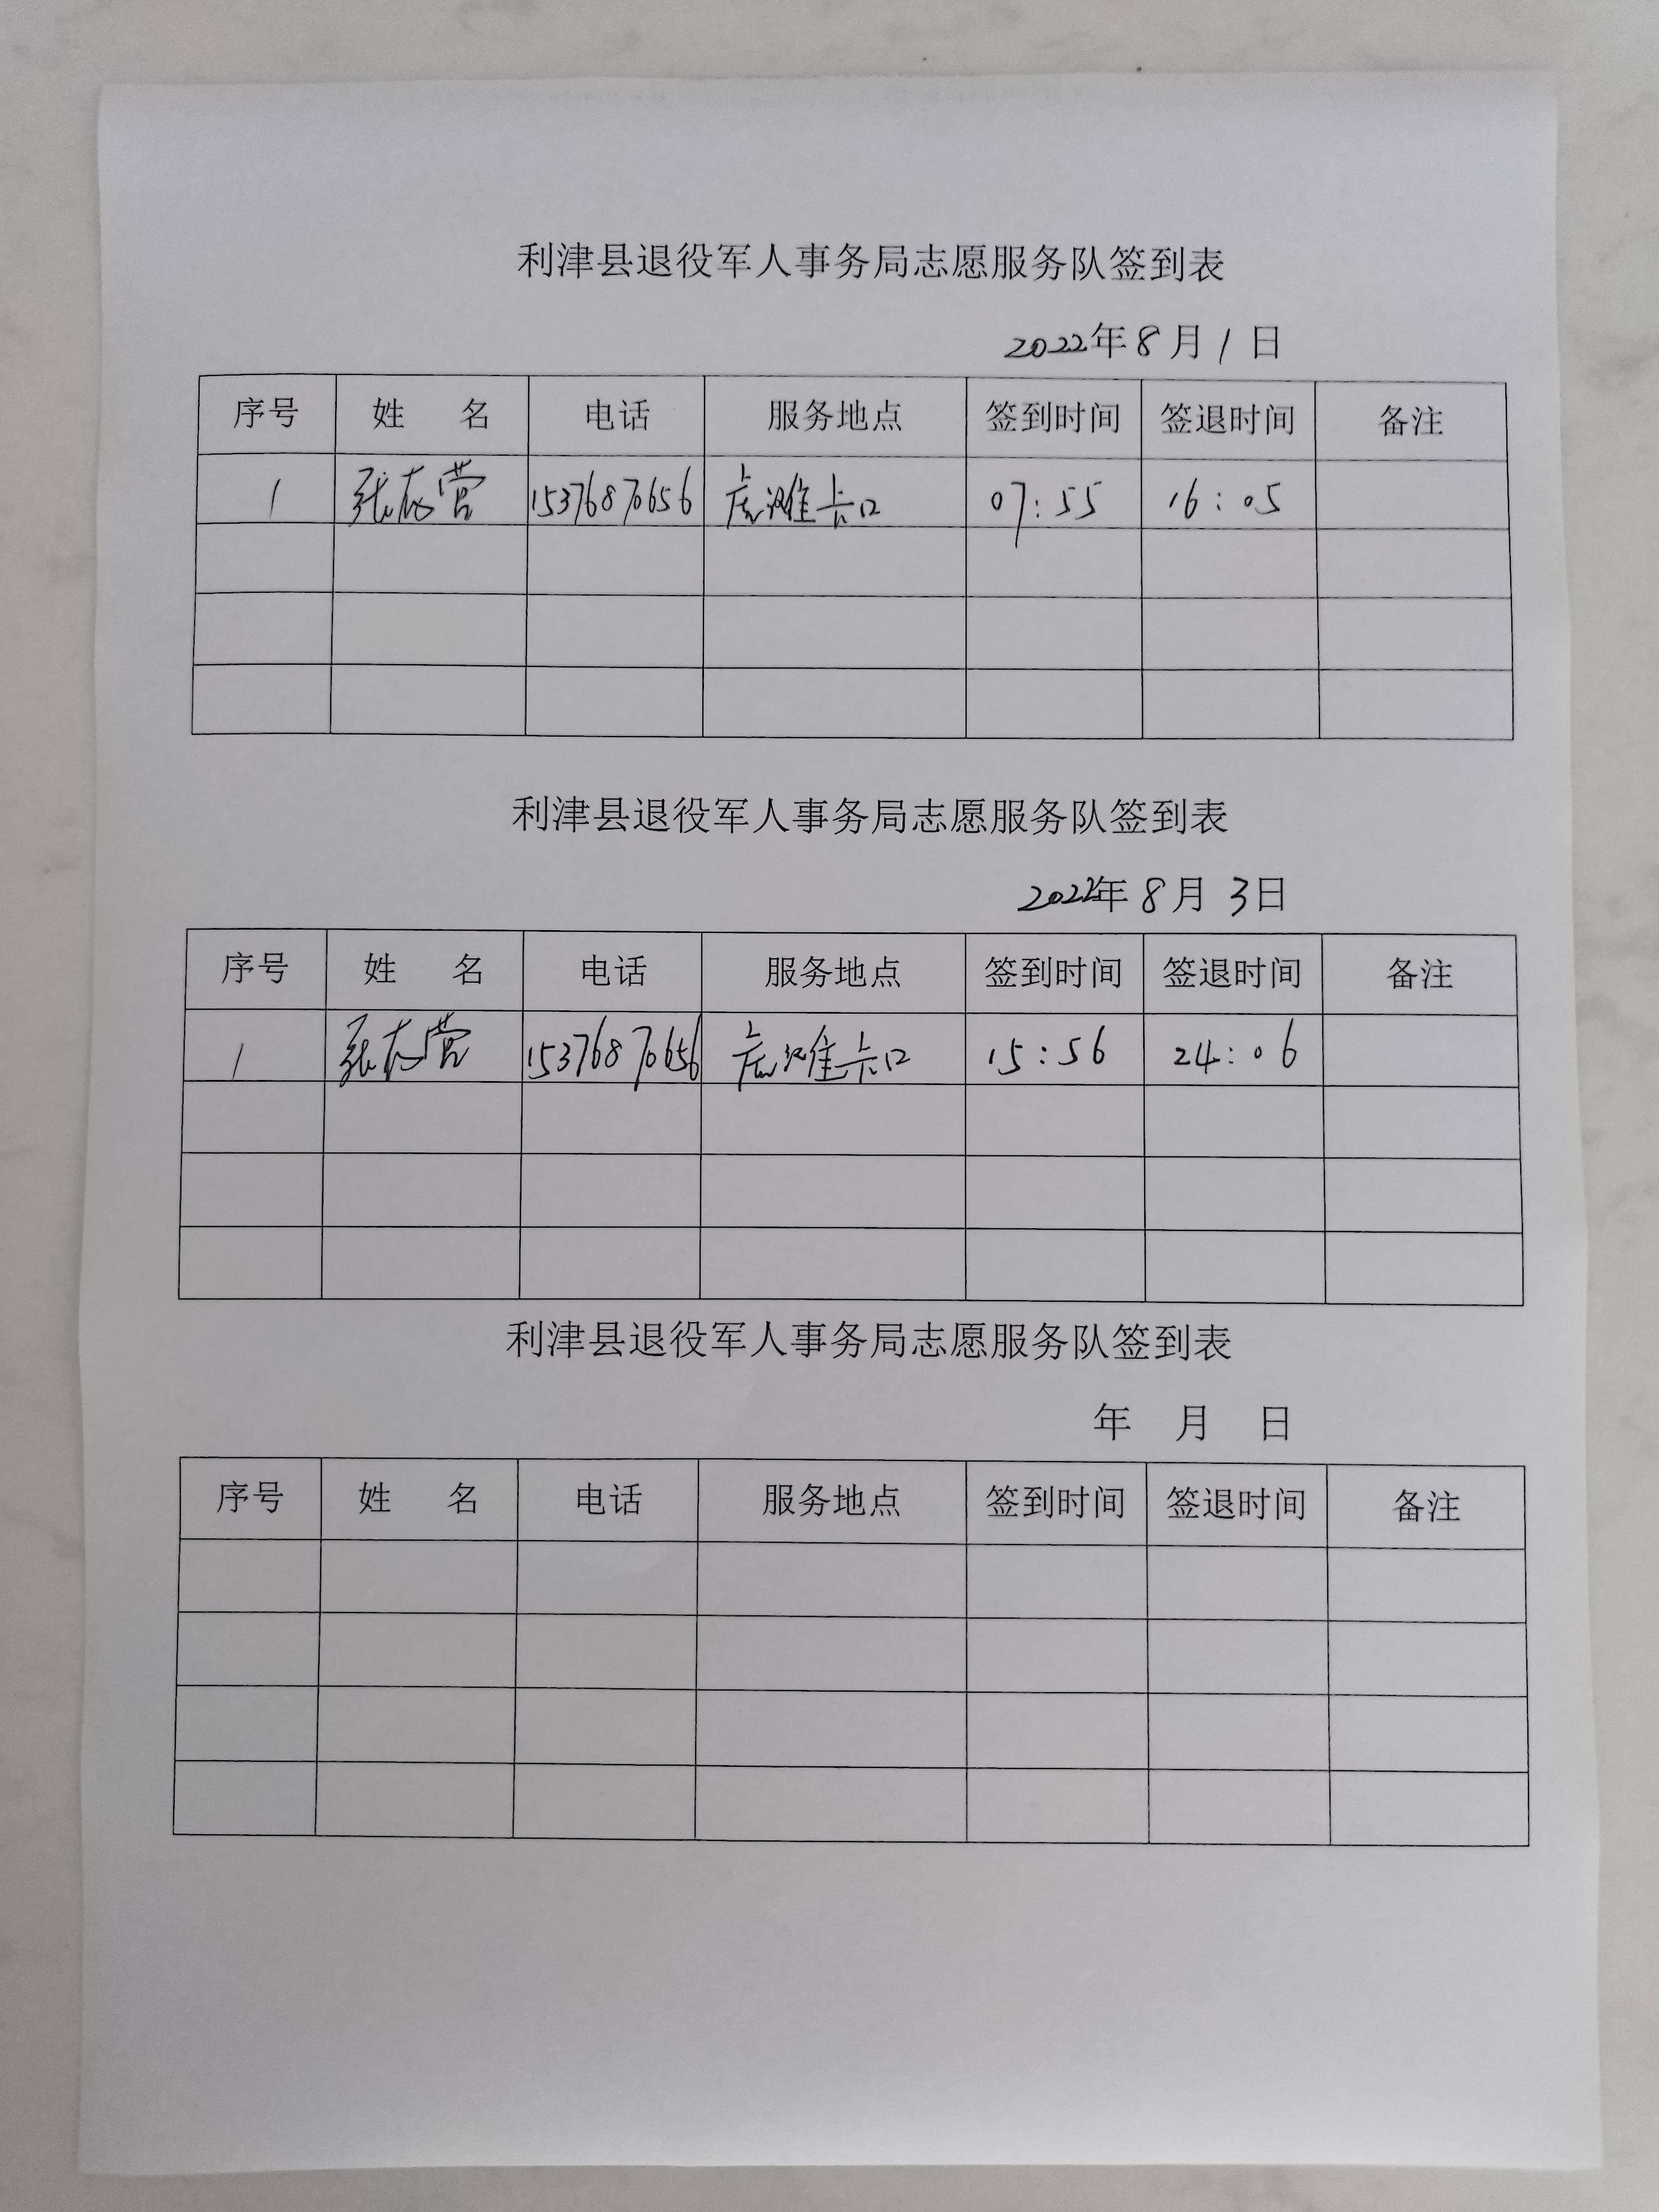 利津县退役军人事务局志愿服务队签到表
2022年8月1日
序号 姓 名 电话 服务地点 签到时间 签退时间 备注
1 张存营 15376870656 虎滩卡口 07:55 16:05
利津县退役军人事务局志愿服务队签到表
2022年8月3日
序号 姓 名 电话 服务地点 签到时间 签退时间 备注
1 张存营 15376870656 虎滩卡口 15:56 24:06
利津县退役军人事务局志愿服务队签到表
年 月 日
序号 姓 名 电话 服务地点 签到时间 签退时间 备注